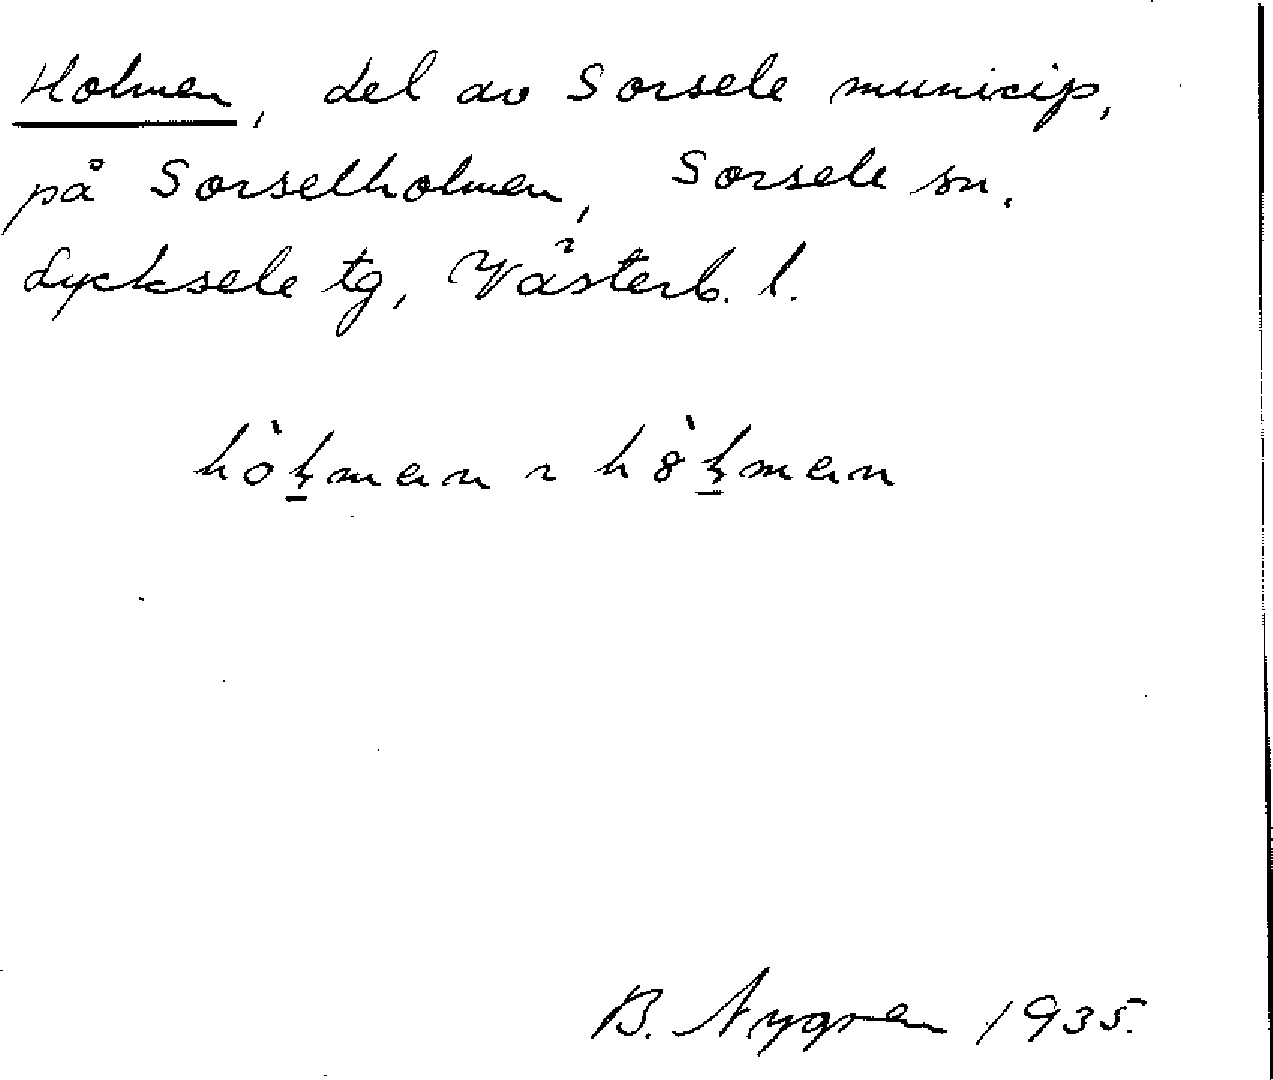 Holmen, del av Sorsele municip,
på Sorselholmen, Sorsele sn.
Lycksele tg, Västerb. l.
B. Nygren 1935.